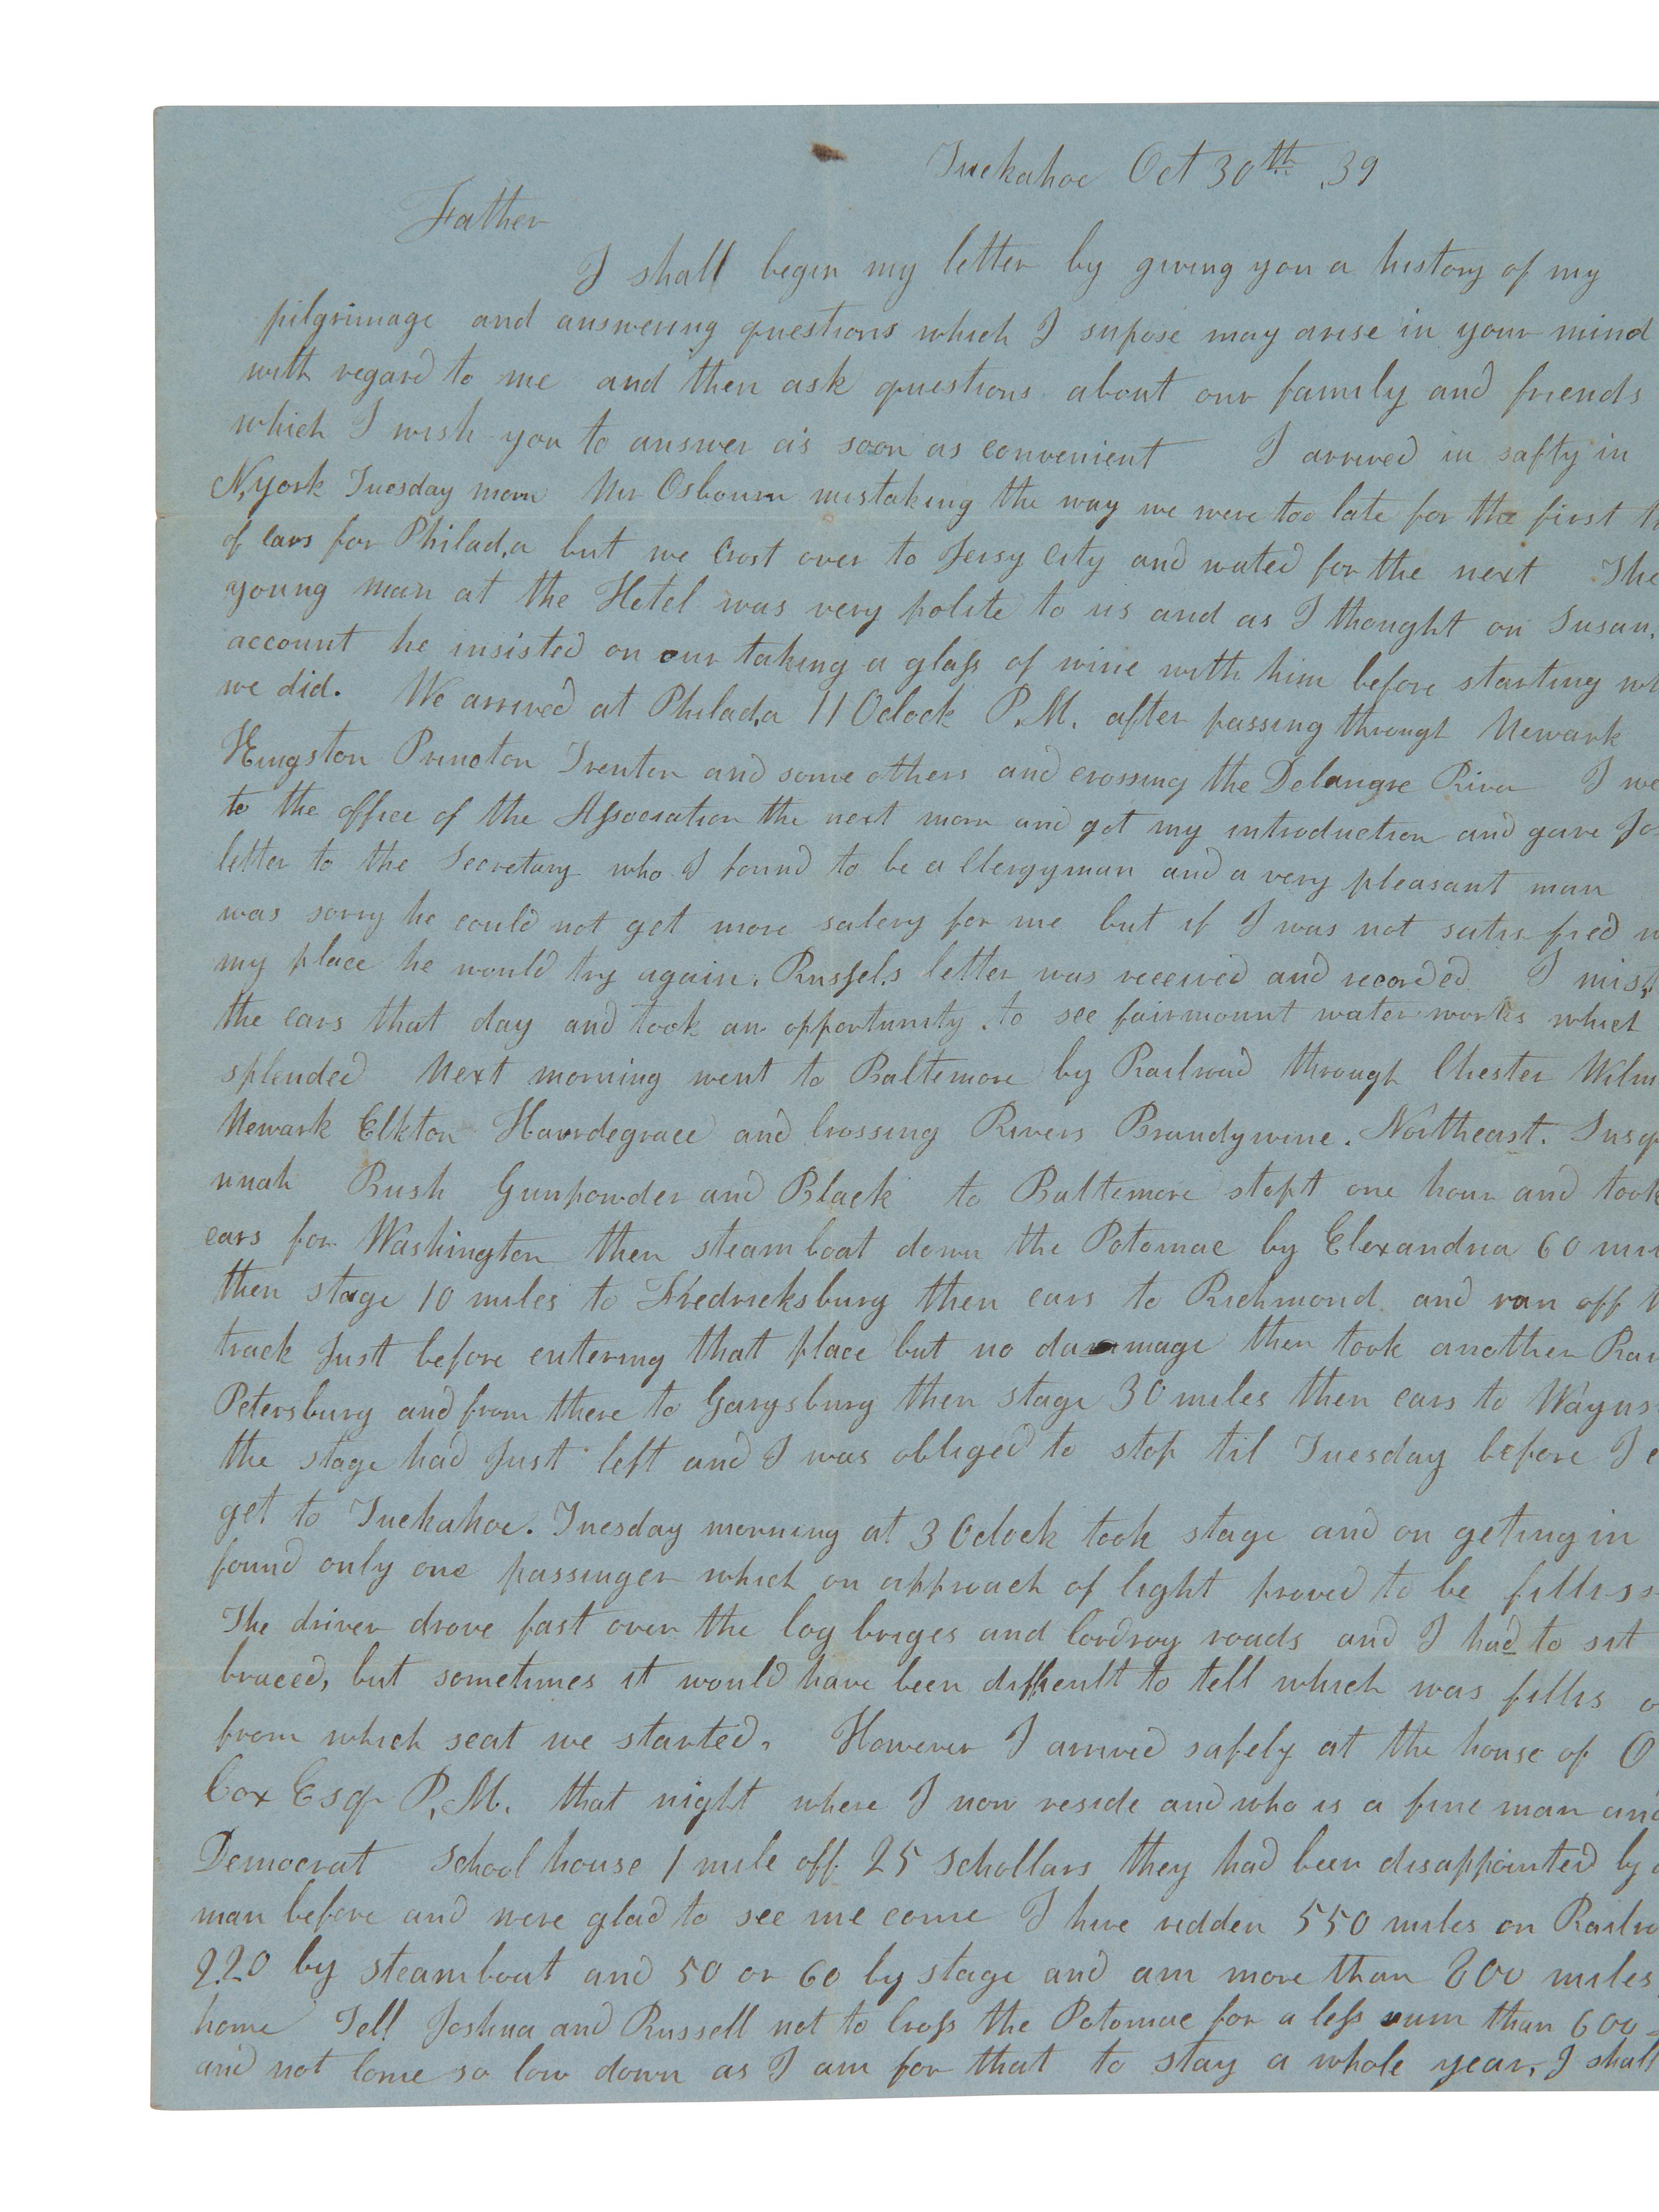 Tuckahoe Oct 30th .39
Father
I shall begin my letter by giving you a history of my
pilgrimage and answering questions which I supose may arise in your mind
with regard to me and then ask questions about our family and friends
which I wish you to answer as soon as convenient I arrived in safty in
N,york Tuesday morn Mr Osbourn mistaking the way we were too late for the first
of cars for Philad,a but we Crost over to Jersy City and wated for the next The
young man at the Hetel was very polite to us and as I thought on Susan,
account he insisted on our taking a glass of wine with him before starting
we did. We arrived at Philad,a 11 Oclock P.M. after passing through Newark
Kingston Princton Trenton and some others and crossing the Delaware River I
to the office of the Association the next morn and got my introduction and gave
letter to the Secretary who I found to be a Clergyman and a very pleasant man
was sorry he could not get more salery for me but if I was not satisfied
my place he would try again. Russel,s letter was received and recorded I mis
the cars that day and took an opportunity to see fairmount water works which
splended Next morning went to Baltemore by Railroad through Chester Wilm
Newark Elkton Havrdegrace and Crossing Rivers Brandywine. Northeast. Susq
nnah Bush Gunpowder and Black to Baltemore stopt one hour and took
cars for Washington then steam boat down the Potomac by Elexandria 60
then stage 10 miles to Fredricksburg then cars to Richmond and ran off
track Just before entering that place but no dammage then took another Rai
Petersburg and from there to Garysburg then stage 30 miles then cars to Wayns
the stage had Just left and I was obliged to stop til Tuesday before I
get to Tuckahoe. Tuesday morning at 3 Oclock took stage and on geting in
found only one passinger which on approach of light proved to be
The driver drove fast over the log briges and Cordroy roads and I had to sit
braced, but sometimes it would have been difficult to tell which was fillis
from which seat we started. However I arrived safely at the house of O
Cox Esqr P,M. that night where I now reside and who is a fine man and
Democrat School house 1 mile off 25 Schollars they had been disappointed by
man before and were glad to see me come I have ridden 550 miles on Railro
220 by steamboat and 50 or 60 by stage and am more than 800 miles
home Tell Joshua and Russell not to Cross the Potomac for a less sum than 600
and not Come so low down as I am for that to stay a whole year, I shall